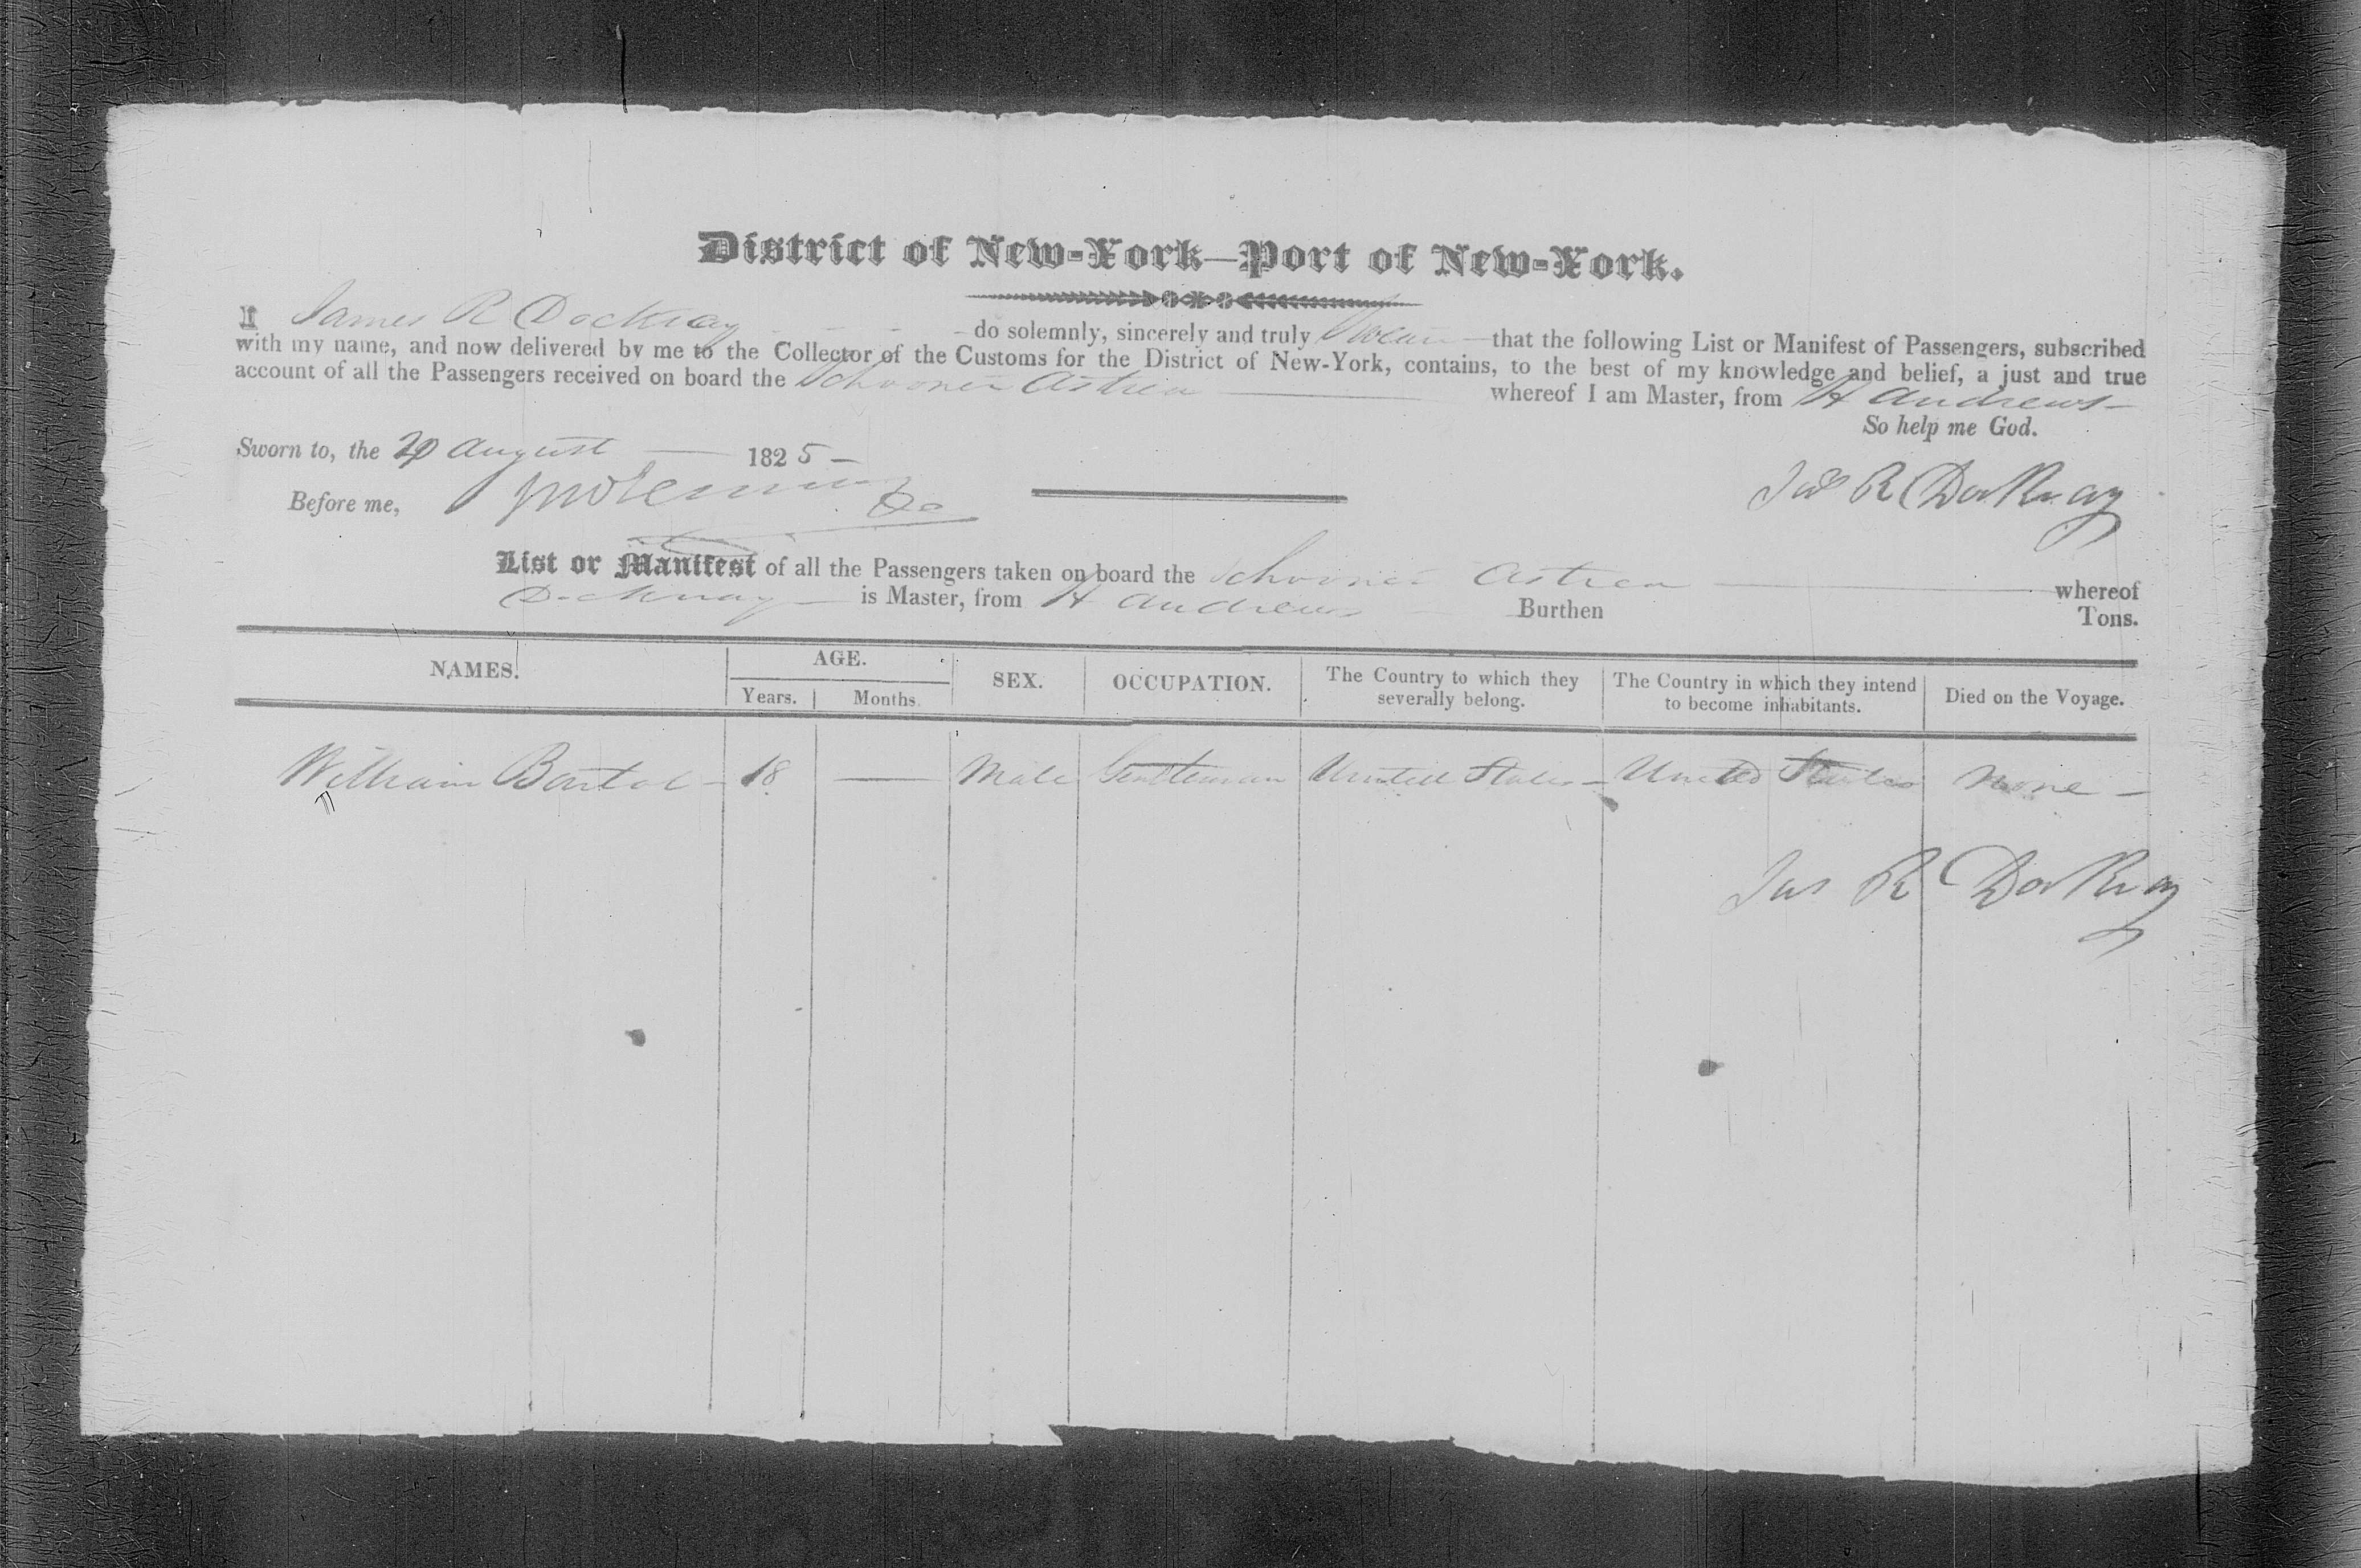 District of New-York—Port of New-York.
I James R Dockray do solemnly, sincerely and truly Swear that the following List or Manifest of Passengers, subscribed
with my name, and now delivered by me to the Collector of the Customs for the District of New-York, contains, to the best of my knowledge and belief, a just and true
account of all the Passengers received on board the Schooner Astrea whereof I am Master, from St Andrews
So help me God.
Sworn to, the August 1825
Before me,
Jas R Dockray
List or Manifest of all the Passengers taken on board the Schooner Astrea whereof
Dockray is Master, from St Andrews Burthen Tons.
NAMES. AGE. SEX. OCCUPATION. The Country to which they severally belong. The Country in which they intend to become inhabitants. Died on the Voyage.
Years. Months.
William Bartol 18 — Male Gentleman United States United States None
Jas R Dockray